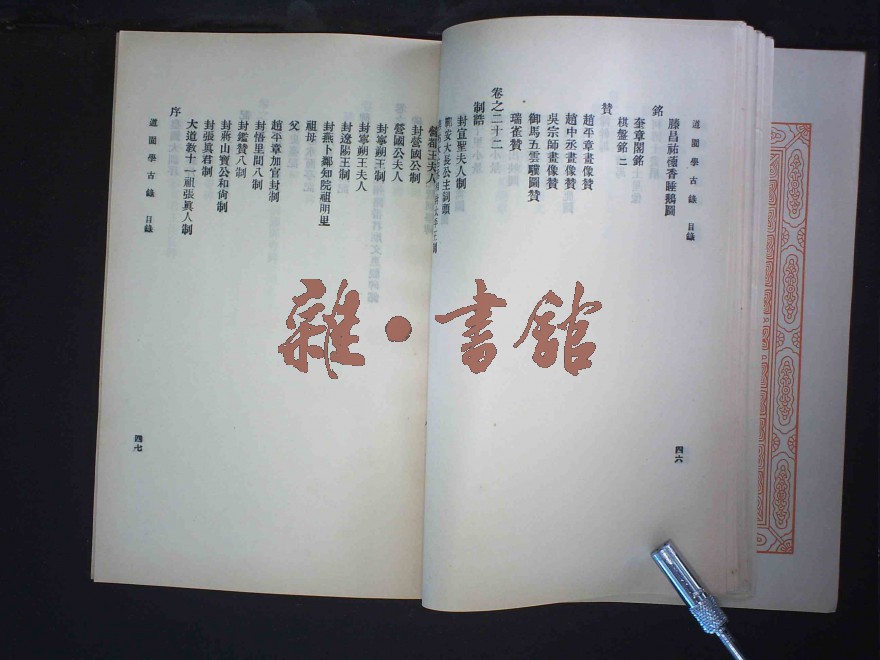 道園學古錄 目錄
滕昌祐㯶香睡鵝圖
銘
奎章閣銘
棋盤銘二
贊
趙平章畫像贊
趙中丞畫像贊
吳宗師畫像贊
御馬五雲驥圖贊
瑞雀贊
卷之二十二
制誥
封宣聖夫人制
安大長公主詞頭
四六
王夫人
封營國公制
營國公夫人
封寧朔王制
封寧朔王夫人
封遼陽王制
封燕卜鄰知院祖明里
祖母
父
趙平章加官封制
封悟里間八制
封鑑贊八制
封蔣山寶公和尚制
封張真君制
大道教十一祖張真人制
序
道園學古錄 目錄
四七
雜·書館